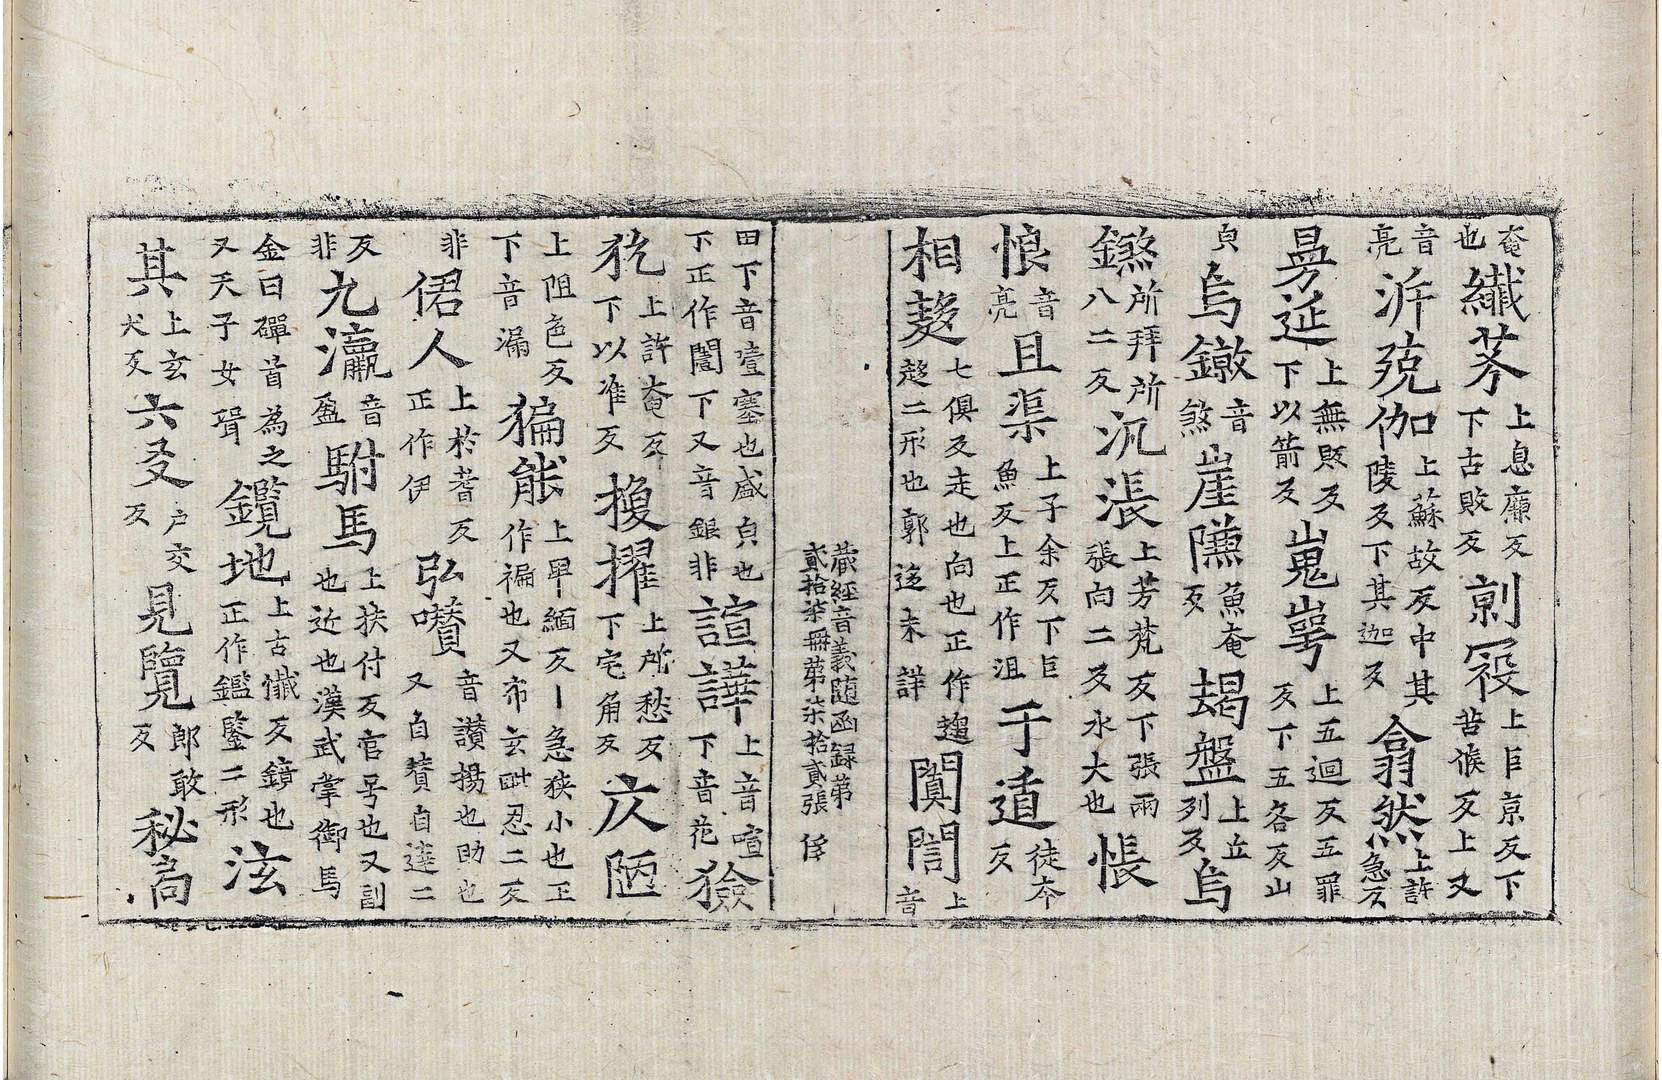 奄也纖芥上息廉反下古敗反㓝冠上巨京反下苦候反上又
音亮泝兢伽上蘇故反中其陵反下其迦反翕然上許急反
曻延上無照反下以箭反嵬崿上五迴反五罪反下五各反山
皃烏鐓音煞崖㒕魚奄反蝎盤上丘列反烏
鐓所拜所八二反汎漲上芳梵反下張兩張向二反水大也悵
悢音亮且渠上子余反下巨魚反上正作沮于遁徒夲反
相趍七俱反走也向也正作趨趂二形也郭迻未詳闐誾上音
藏經音義随函録弟貳拾柒冊弟柒拾貳張 侔
田下音噎塞也盛皃也下正作闇下又音銀非諠譁上音喧下音花獫
狁上許奄反下以准反搜擢上所愁反下宅角反庂陋
上阻色反下音漏猵能上卑緬反丨急狹小也正作褊也又布玄毗忍二反
非侰人上於耆反正作伊弘囋音讃揚也助也又自賛自達二
反非九瀛音盈駙馬上扶付反官号也又副也近也漢武掌御馬
金日磾首為之又天子女壻鑬地上古懺反鏡也正作鑑鑒二形泫
其上玄犬反六爻户交反見覽郎敢反秘㕡